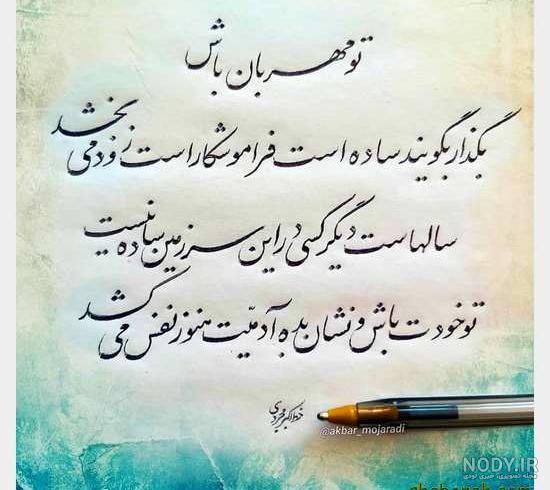 تو مهربان باش
بگذار بگویند ساده است فراموشکار است زود می بخشد
سالهاست دیگر کسی در این سرزمین ساده نیست
تو خودت باش و نشان بده آدمیّت هنوز نفس می کشد
خط اکبر مجردی
@akbar_mojaradi
NODY.IR
مجله تصویری، خبری نودی